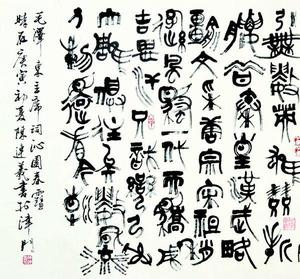 引無數英雄競折
腰惜秦皇漢武略
輸文采唐宗宋祖稍
遜風騷一代天驕成
吉思汗只識彎弓射
大雕俱往矣數風流
人物還看今朝
毛澤東主席詞沁園春雪
時在庚寅初夏陳義書於津門